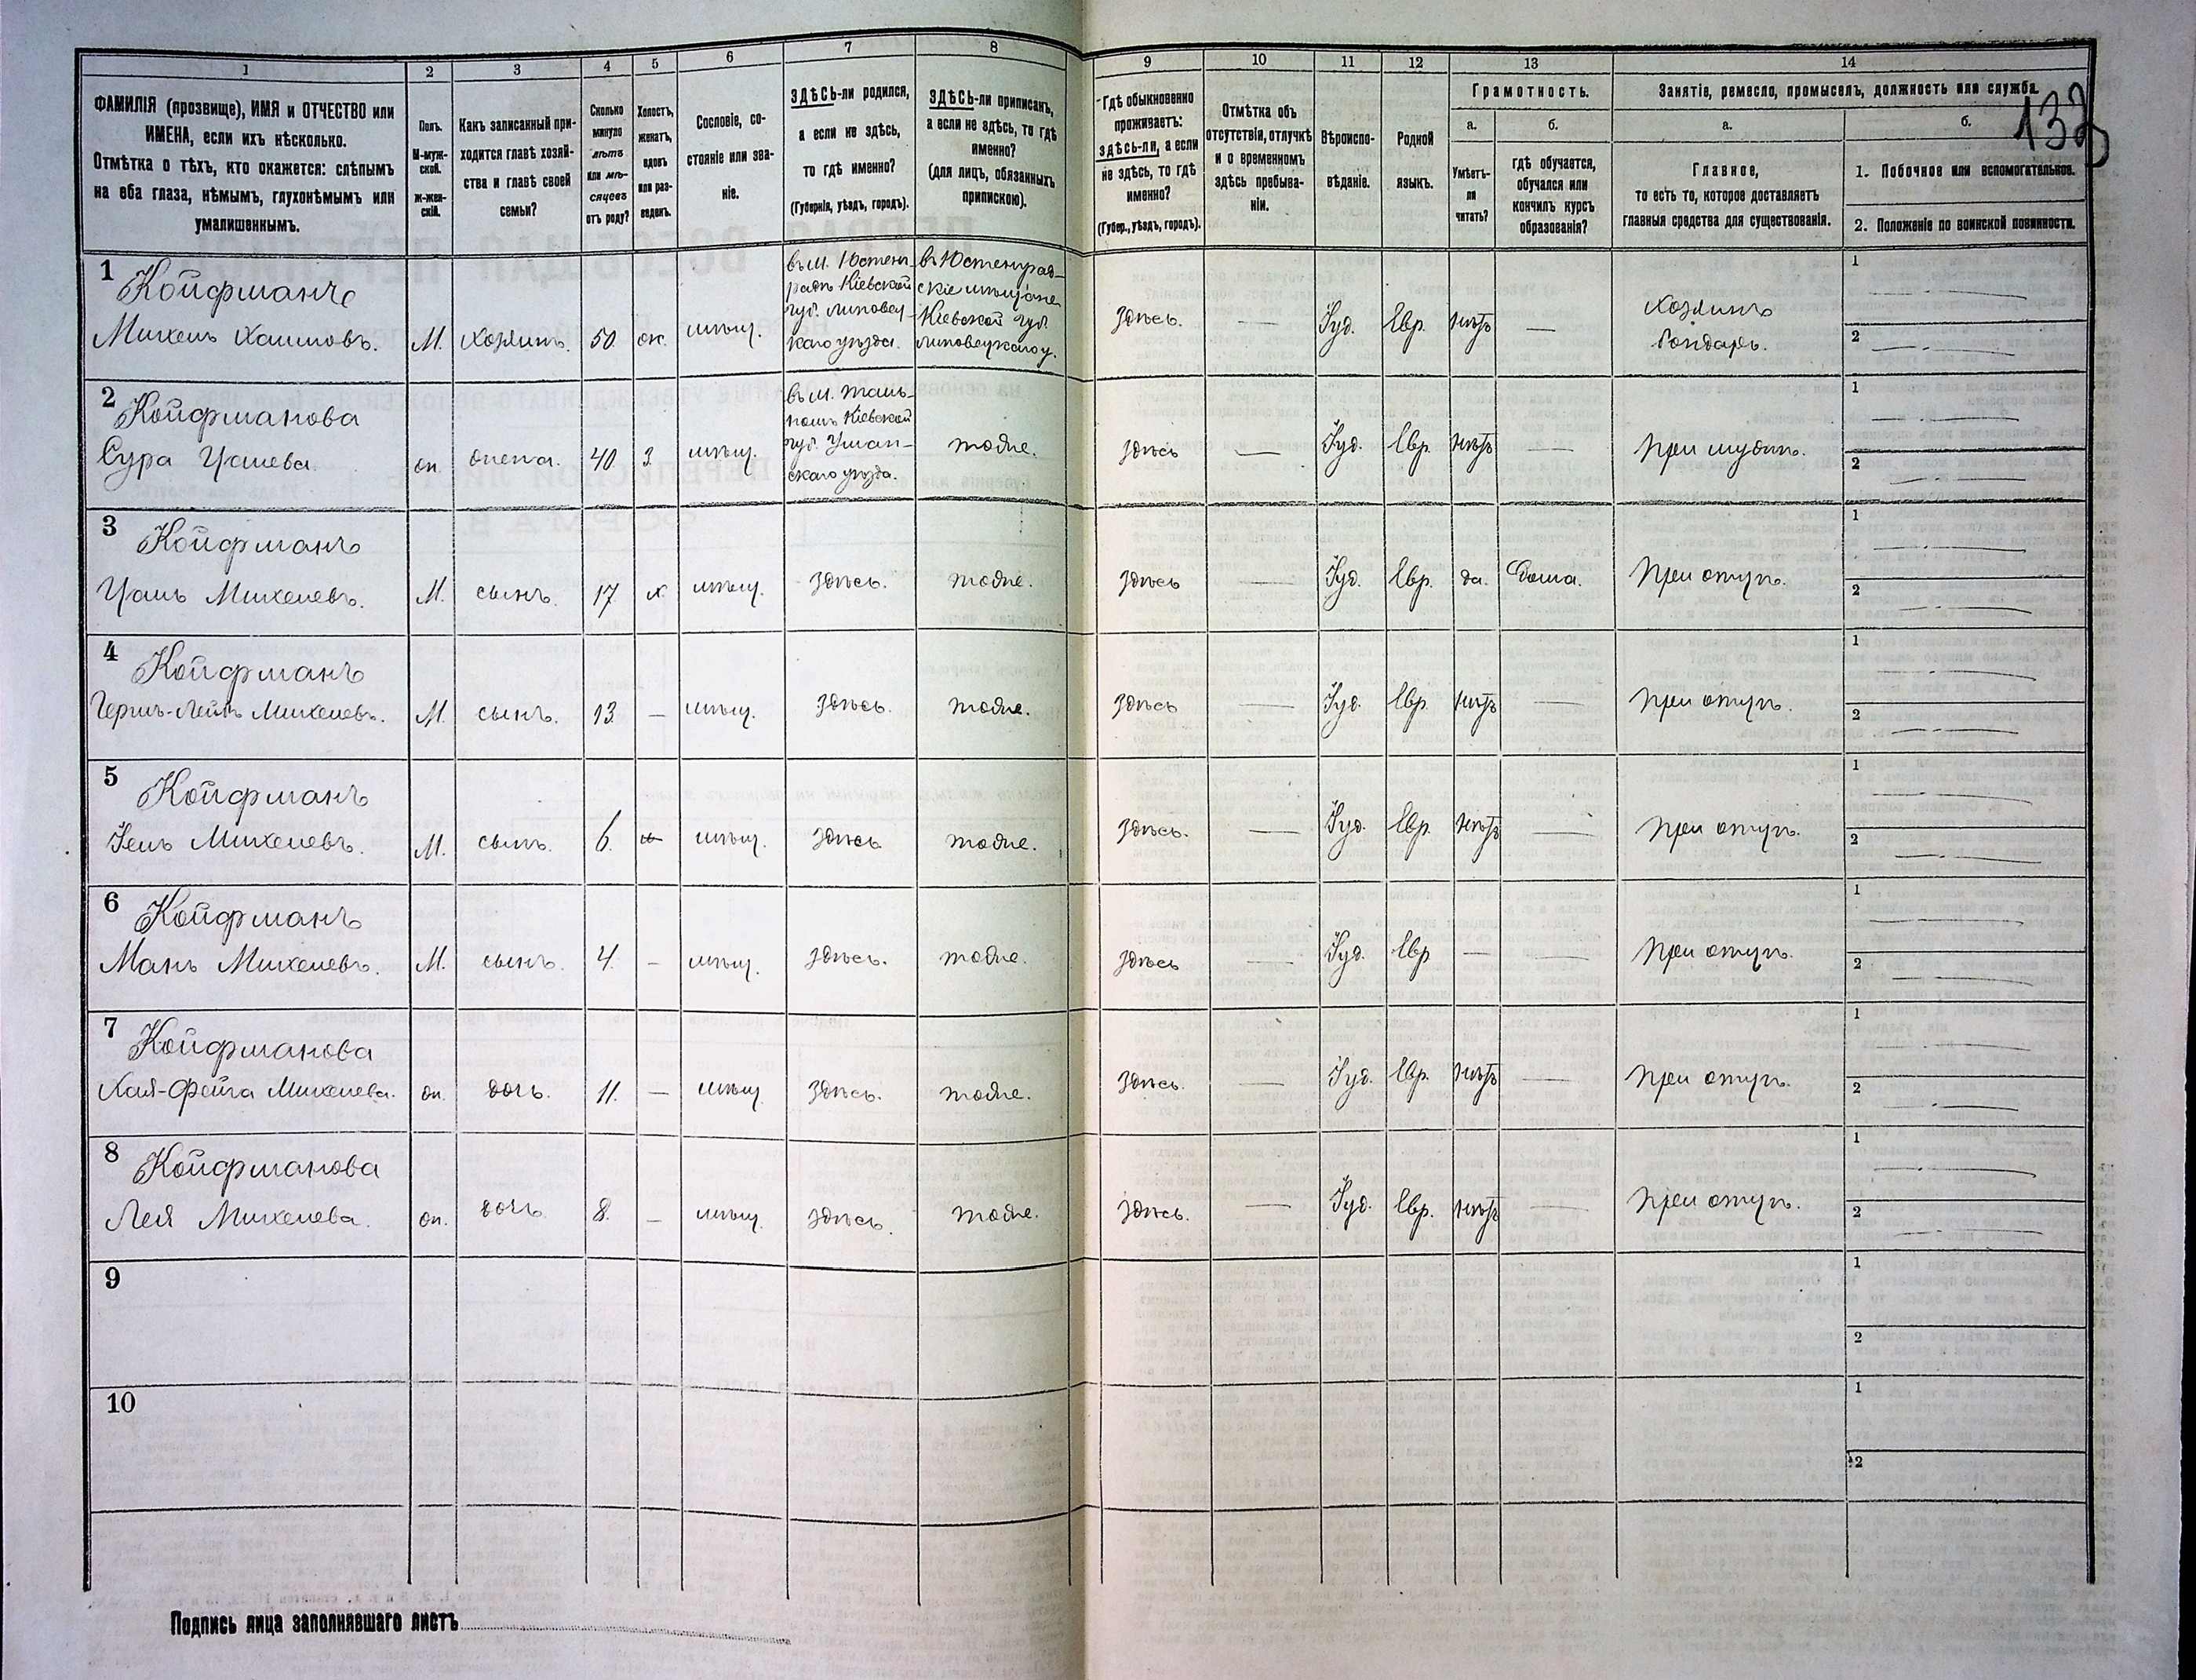 133
1
2
3
4
5
6
7
8
9
10
11
12
13
14
ФАМИЛІЯ (прозвище), ИМЯ и ОТЧЕСТВО или
ИМЕНА, если ихъ нѣсколько.
Отмѣтка о тѣхъ, кто окажется: слѣпымъ
на оба глаза, нѣмымъ, глухонѣмымъ или
умалишеннымъ.
Полъ.
М-муж-
ской.
Ж-жен-
скій.
Какъ записанный при-
ходится главѣ хозяй-
ства и главѣ своей
семьи?
Сколько
минуло
лѣтъ
или мѣ-
сяцевъ
отъ роду?
Холостъ,
женатъ,
вдовъ
или раз-
веденъ.
Сословіе, со-
стояніе или зва-
ніе.
ЗДѢСЬ-ли родился,
а если не здѣсь,
то гдѣ именно?
(Губернія, уѣздъ, городъ).
ЗДѢСЬ-ли приписанъ,
а если не здѣсь, то гдѣ
именно?
(для лицъ, обязанныхъ
припискою).
Гдѣ обыкновенно
проживаетъ:
здѣсь-ли, а если
не здѣсь, то гдѣ
именно?
(Губер., уѣздъ, городъ).
Отмѣтка объ
отсутствіи, отлучкѣ
и о временномъ
здѣсь пребыва-
ніи.
Вѣроиспо-
вѣданіе.
Родной
языкъ.
Грамотность.
а.
Умѣетъ-
ли
читать?
б.
гдѣ обучается,
обучался или
кончилъ курсъ
образованія?
Занятіе, ремесло, промыселъ, должность или служба.
а.
Главное,
то есть то, которое доставляетъ
главныя средства для существованія.
б.
1. Побочное или вспомогательное.
2. Положеніе по воинской повинности.
1
Койфманъ
Михель Хаимовъ.
М.
хозяинъ.
50
ж.
мѣщ.
въ м. Юстин-
градъ Кіевской
губ. Липовец-
каго уѣзда.
въ Юстинград-
скіе мѣщане
Кіевской губ.
Липовецкаго у.
Здѣсь.
—
Іуд.
Евр.
нѣтъ
—
хозяинъ
бондарь.
1
2
2
Койфманова
Сура
ж.
жена.
40.
з.
мѣщ.
въ м. Таль-
номъ Кіевской
губ. Уман-
скаго уѣзда.
тоже.
здѣсь
—
Іуд.
Евр.
нѣтъ
—
при мужѣ.
1
2
3
Койфманъ
Михелевъ.
М.
сынъ.
17
х
мѣщ.
здѣсь.
тоже.
здѣсь
—
Іуд.
Евр.
да.
Дома.
при отцѣ.
1
2
4
Койфманъ
Гершъ-Лейбъ Михелевъ.
М.
сынъ.
13.
—
мѣщ.
здѣсь.
тоже.
здѣсь
—
Іуд.
Евр.
нѣтъ
—
при отцѣ.
1
2
5
Койфманъ
Михелевъ.
М.
сынъ.
6.
мѣщ.
здѣсь
тоже.
здѣсь.
—
Іуд.
Евр.
нѣтъ
—
при отцѣ.
1
2
6
Койфманъ
Манъ Михелевъ.
М.
сынъ.
4.
—
мѣщ.
здѣсь.
тоже.
здѣсь
—
Іуд.
Евр
—
—
при отцѣ.
1
2
7
Койфманова
Хая-Фейга Михелева.
ж.
дочь.
11.
—
мѣщ.
здѣсь.
тоже.
здѣсь.
—
Іуд.
Евр.
нѣтъ
—
при отцѣ.
1
2
8
Койфманова
Лея Михелева.
ж.
дочь
8.
—
мѣщ.
здѣсь.
тоже.
здѣсь.
—
Іуд.
Евр.
нѣтъ
—
при отцѣ.
1
2
9
1
2
10
1
2
Подпись лица заполнявшаго листъ